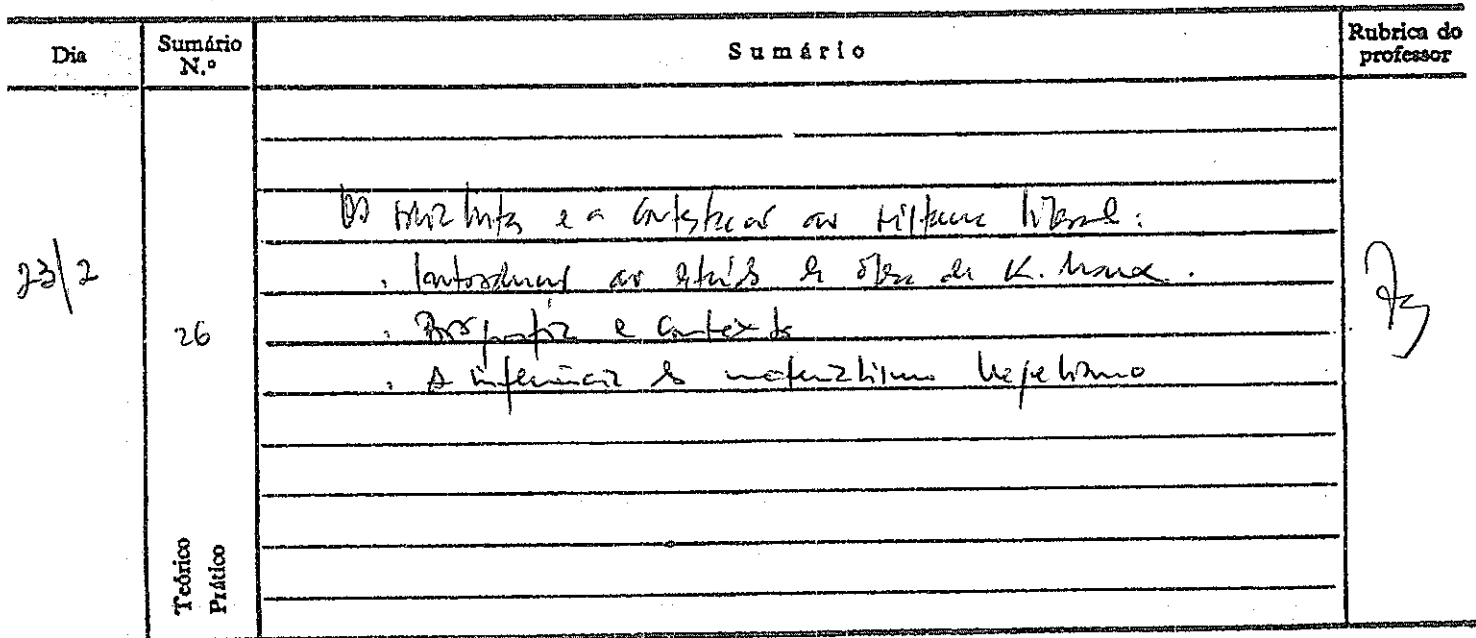 Dia Sumário N.º Sumário Rubrica do professor
23/2
26
Os socialistas e a contestação ao sistema liberal:
. Introdução ao estudo da obra de K. Marx.
. Biografia e contexto
. A influência do materialismo hegeliano
Teórico
Prático